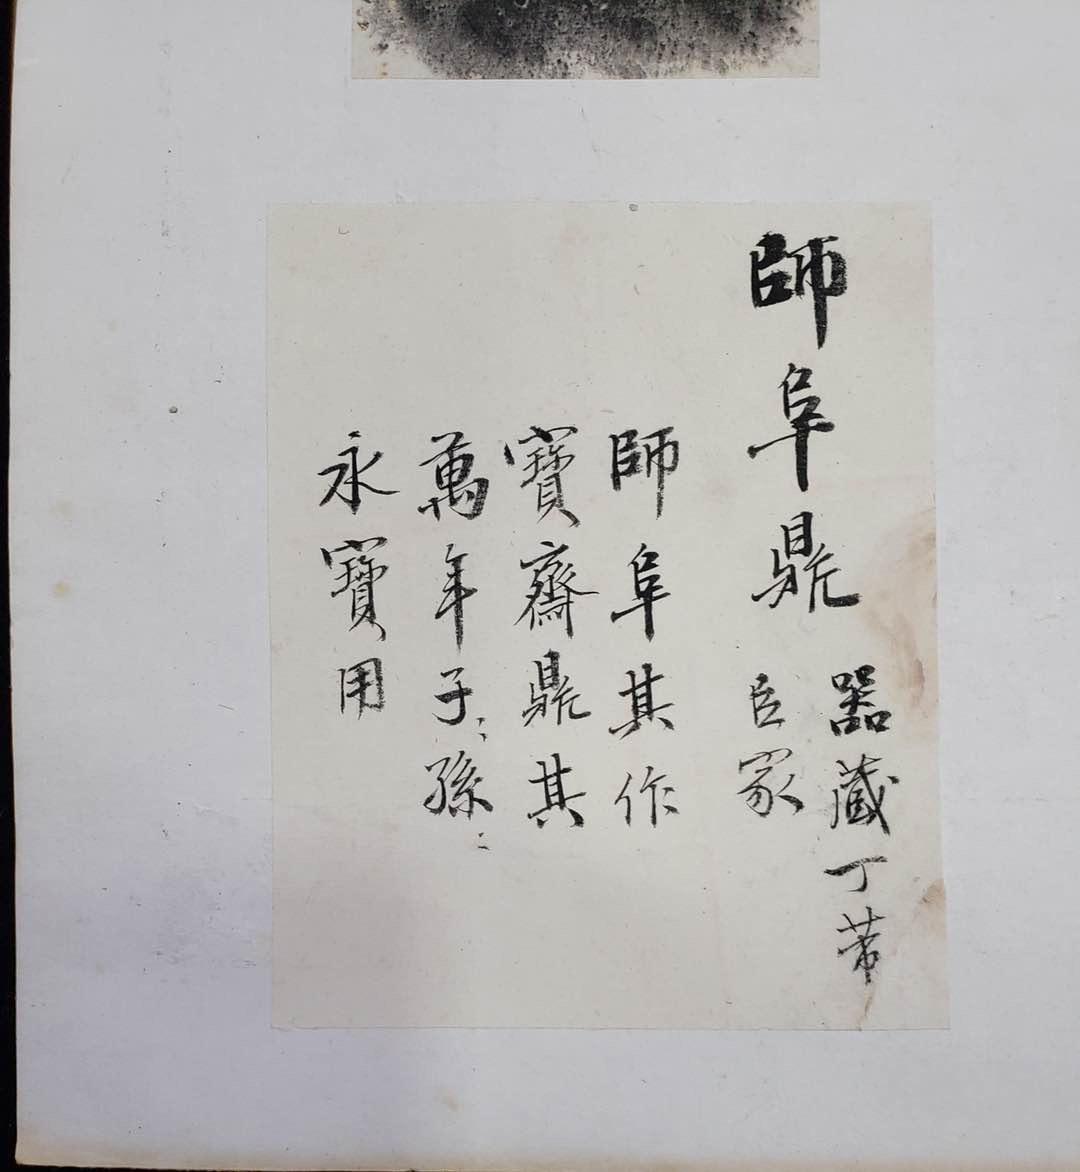 師阜鼎
器藏丁芾
臣家
師阜其作
寶齋鼎其
萬年子〻孫〻
永寶用